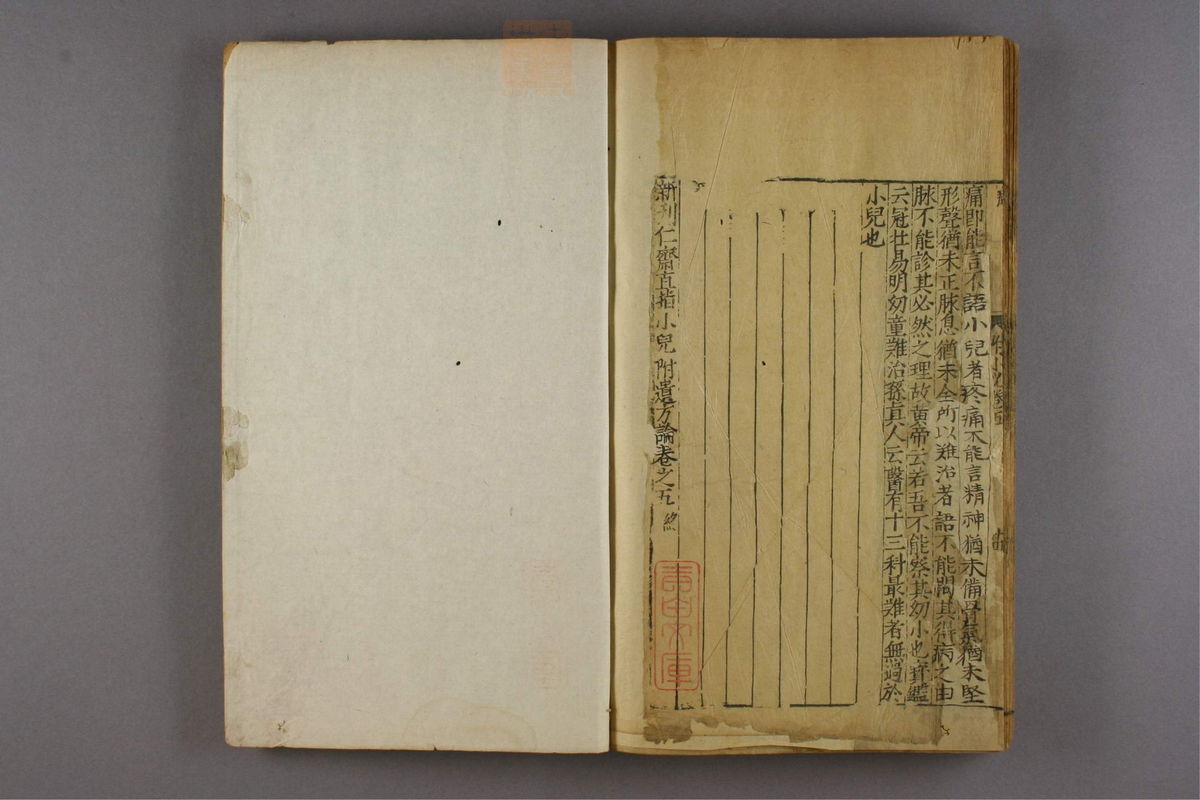 痛即能言不語小兒者疼痛不能言精神猶未備骨氣猶未堅
形聲猶未正脉息猶未全所以難治者語不能問其得病之由
脉不能診其必然之理故黄帝云若吾不能察其幼小也寳鑑
云冠壮易明幼童難治孫真人云醫有十三科最難者無過於
小兒也
新刊仁齋直指小兒附遺方論卷之五 終